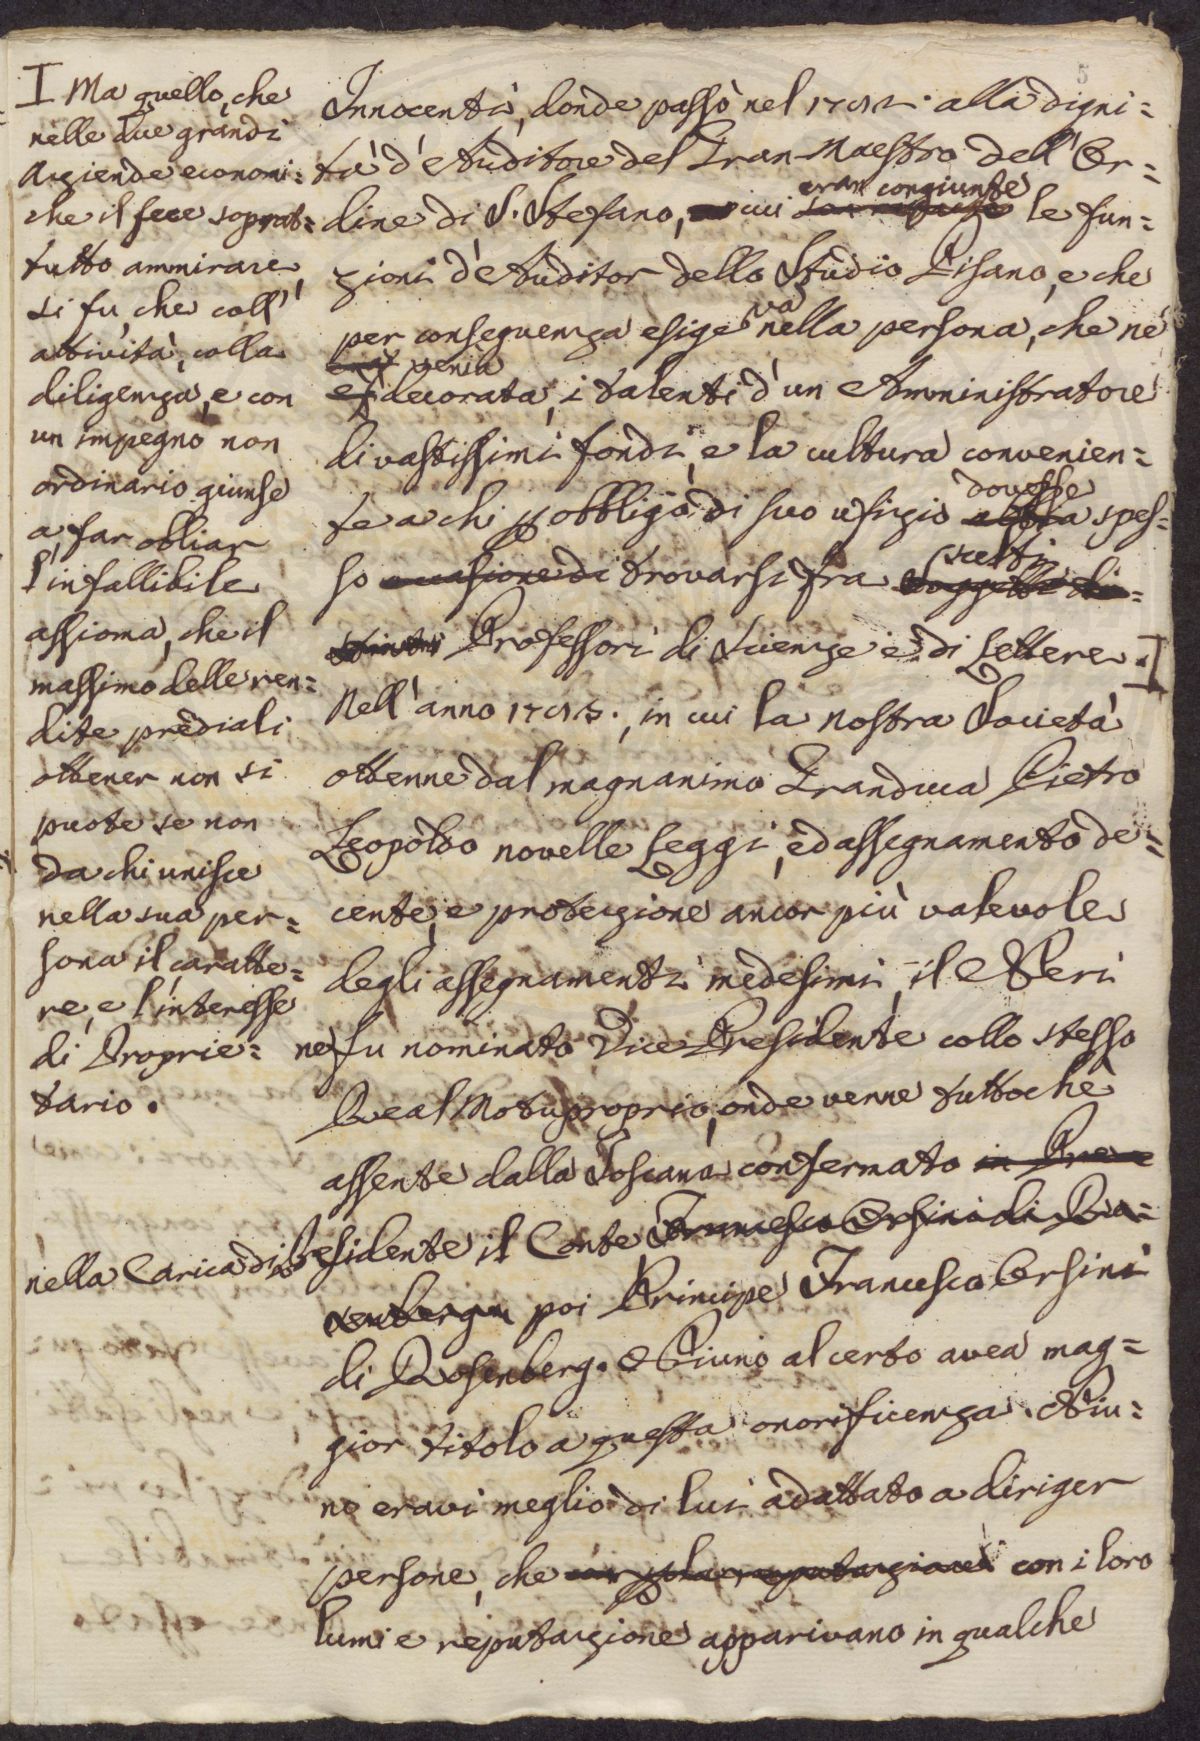 5
I Ma quello, che
nelle due grandi
Aziende economi=
che il fece soprat=
tutto ammirare
si fu, che coll'
attività, colla
diligenza, e con
un impegno non
ordinario giunse
a far obliar
l'infallibile
assioma, che il
massimo delle ren=
dite prediali
ottener non si
puote se non
da chi unisce
nella sua per=
sona il caratte=
re, e l'interesse
di Proprie=
tario.
nella Carica di
Innocenti, donde passò nel alla digni=
tà d'Auditore del Gran-Maestro dell'Or=
eran congiunte
dine di S. Stefano, cui le fun=
zioni d'Auditor dello Studio Pisano, e che
va
per conseguenza esige nella persona, che ne
venia
è decorata, i talenti d'un Amministratore
di vastissimi fondi, e la cultura convenien=
dovesse
te a chi p obbligo di suo ufizio abbia spes=
scelti
so occasione di trovarsi fra Soggetti di=
stinti Professori di Scienze e di Lettere. I
Nell'anno in cui la nostra Società
ottenne dal magnanimo Granduca Pietro
Leopoldo novelle Leggi, ed assegnamento de=
cente, e protezione ancor più valevole
degli assegnamenti medesimi, il Neri
ne fu nominato Vice-Presidente collo stesso
Real Motuproprio, onde venne tuttochè
assente dalla Toscana confermato in Pre=
sidente il Conte Francesco Orsini di Ro=
senbergh poi Principe Francesco Orsini
di Rosenberg. Niuno al certo avea mag=
gior titolo a questa onorificenza. Niu=
no eravi meglio di lui adattato a diriger
persone, che con la reputazione con i loro
lumi e reputazione apparivano in qualche